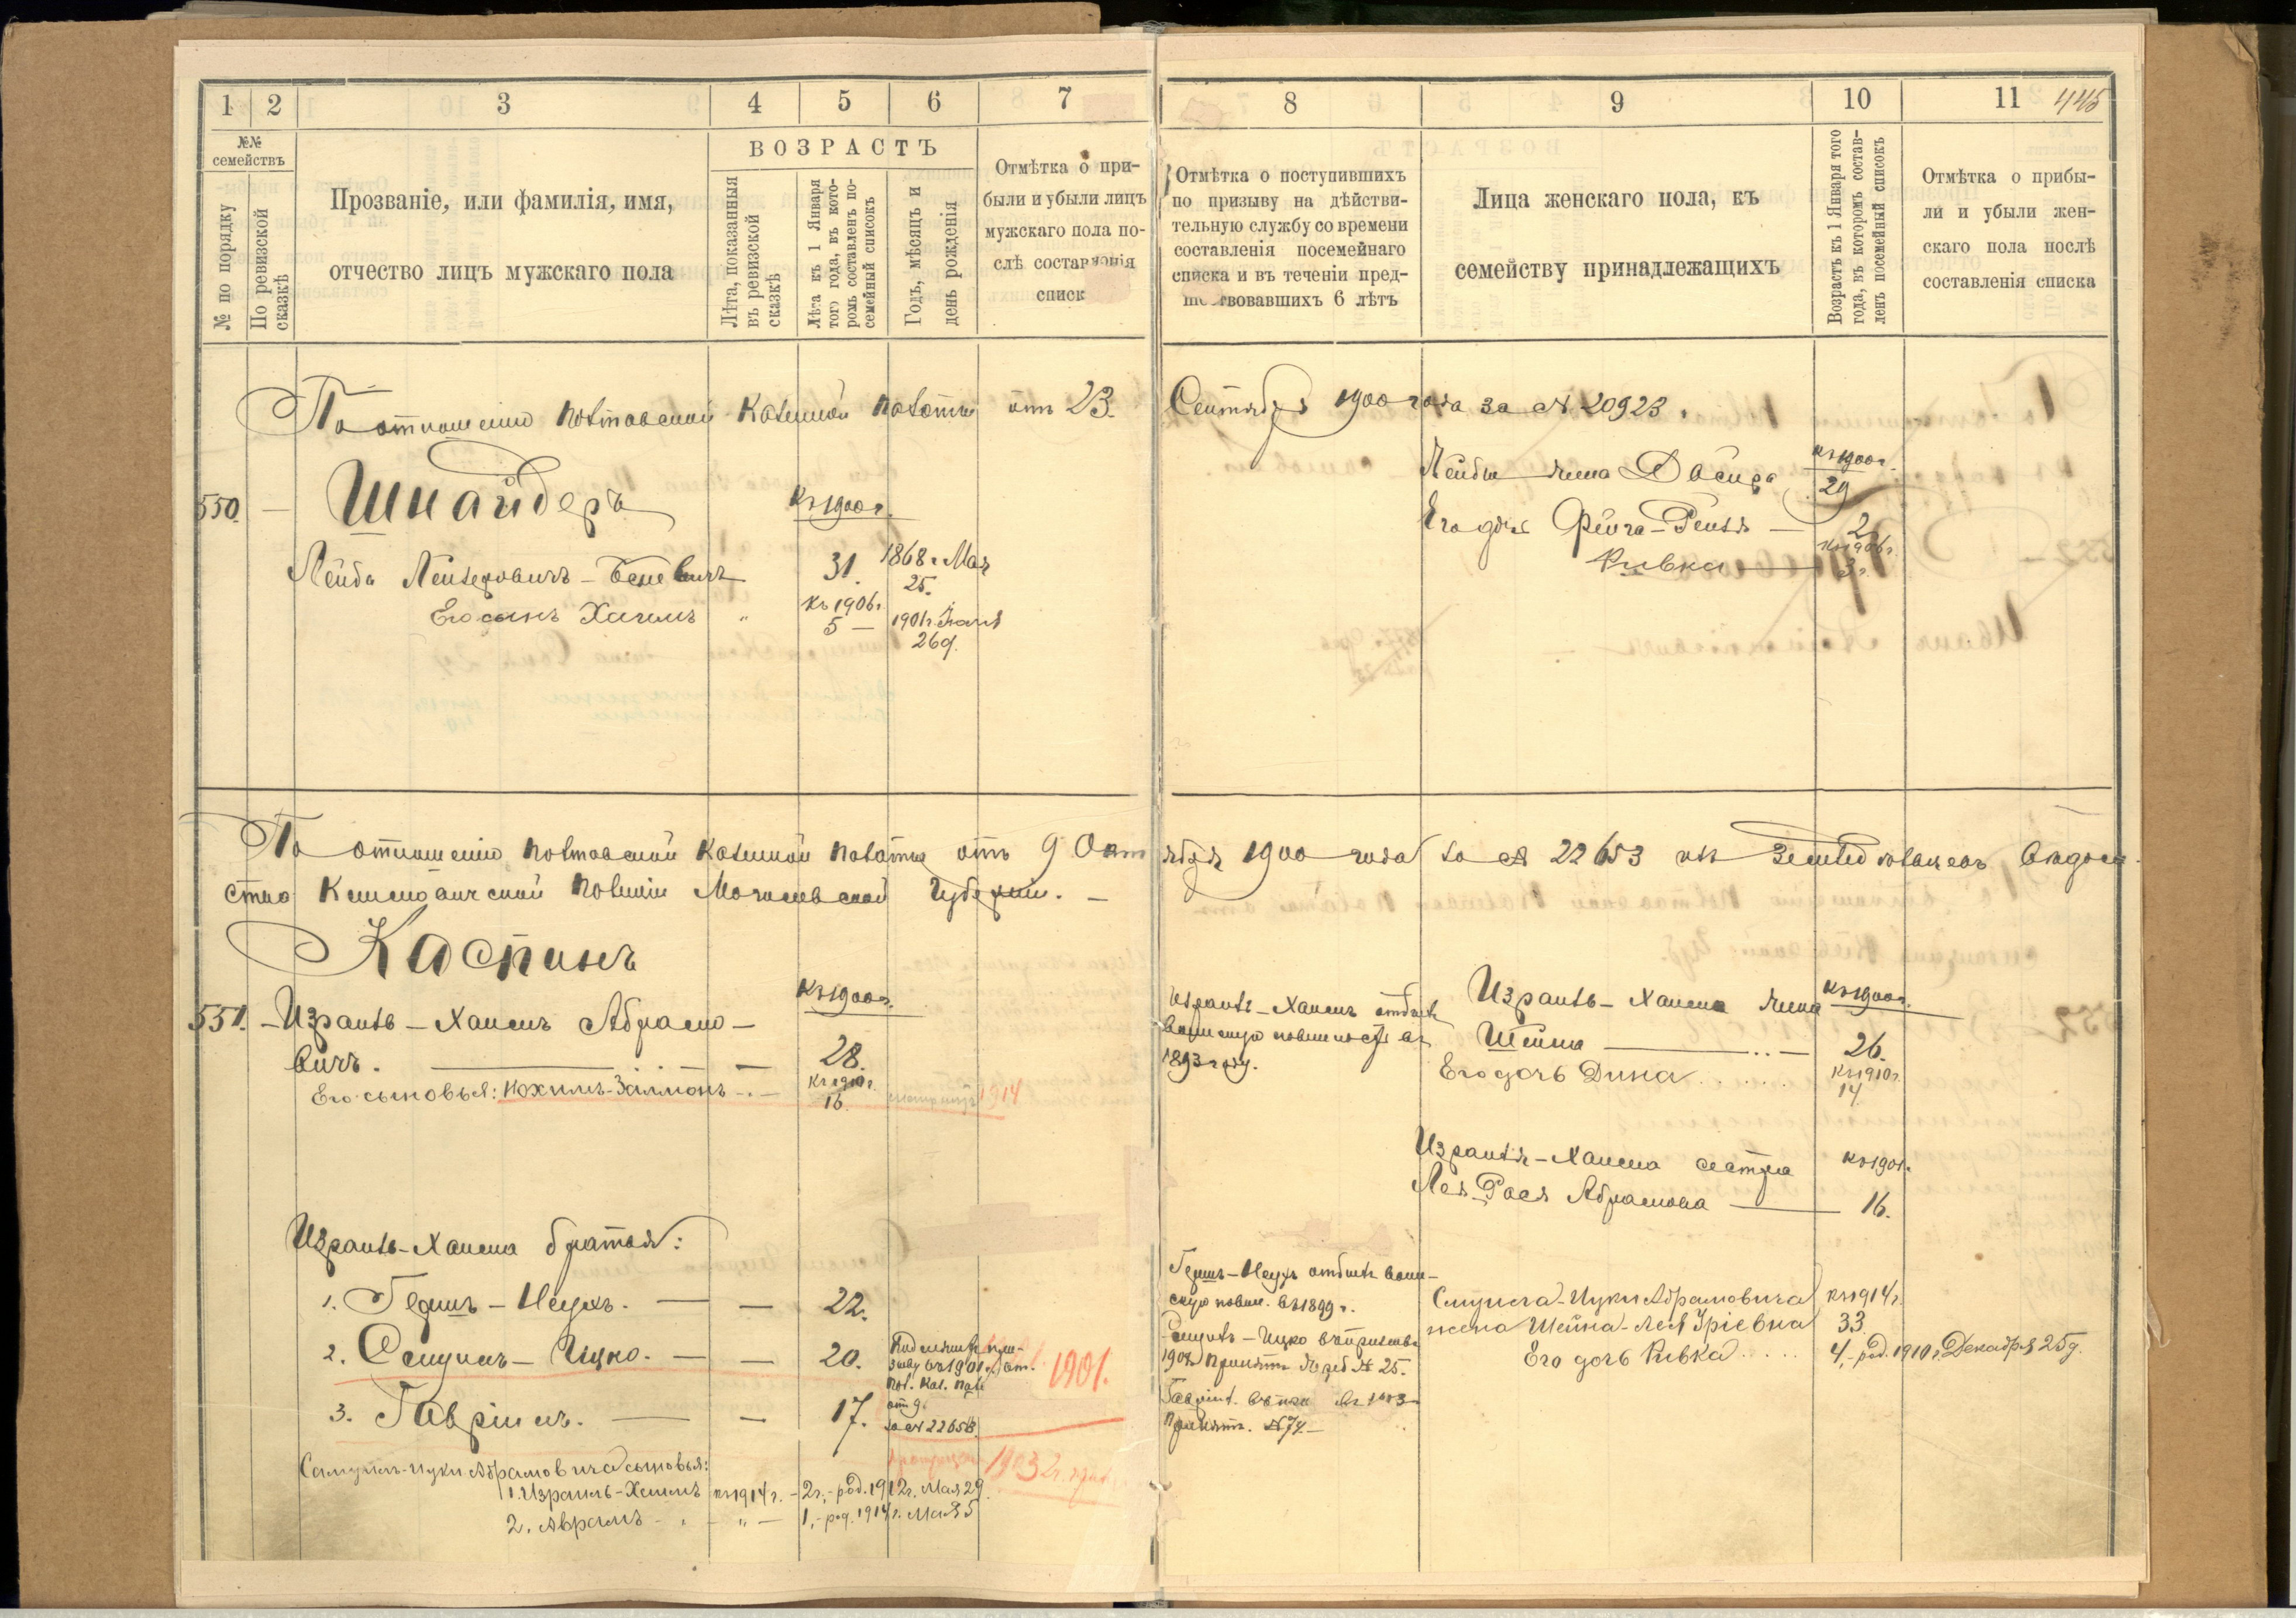 1 2 3 4 5 6 7
№№ семействъ
№ по порядку
По ревизской сказкѣ
Прозваніе, или фамилія, имя,
отчество лицъ мужскаго пола
ВОЗРАСТЪ
Лѣта, показанныя въ ревизской сказкѣ
Лѣта къ 1 Января того года, въ которомъ составленъ посемейный списокъ
Годъ, мѣсяцъ и день рожденія
Отмѣтка о при-
были и убыли лицъ
мужскаго пола по-
слѣ составленія
списк
По отношенію Полтавской Казенной Палаты отъ 23.
550. — Шнайдеръ
Къ 1900 г.
Лейба Лейзеровичъ-Беневичъ 31. 1868 г. Мая
25.
Его сынъ Хаимъ " Къ 1906 г.
5 — 1901 г.
26 д.
По отношенію Полтавской Казенной Палаты отъ 9 Окт
Могилевской Губерніи. —
Каспинъ
Къ 1900 г.
551. — Израиль-Хаимъ Абрамо-
вичъ. — — 28.
Его сыновья: Нохимъ-Залманъ — Къ 1910 г.
16. 1914
Израиль-Хаима братья:
1. Гершъ-Неухъ. — — 22.
2. Самуилъ-Ицко. — — 20.
1901.
3. Гавріилъ. — — 17.
отъ 9.
за № 22653.
Самуилъ-Ицки Абрамовича сыновья: 1903
1. Израиль-Хаимъ къ 1914 г. — 2 г. — род. 1912 г. Мая 29
2. Абрамъ — " — 1, — род. 1914 г. Мая 5
8 9 10 11 445
Отмѣтка о поступившихъ
по призыву на дѣйстви-
тельную службу со времени
составленія посемейнаго
списка и въ теченіи пред-
шествовавшихъ 6 лѣтъ
Лица женскаго пола, къ
семейству принадлежащихъ
Возрастъ къ 1 Января того года, въ которомъ составленъ посемейный списокъ
Отмѣтка о прибы-
ли и убыли жен-
скаго пола послѣ
составленія списка
Сентября 1900 года за № 20923.
Лейбы жена Двойра Къ 1900 г.
29
Его дочь Фейга-Рейзя — 2
Къ 1906 г.
Ривка — 3 г.
ября 1900 года за № 22653 изъ
Израиль-Хаимъ отбылъ
воинскую повинность въ
1893 году.
Израиль-Хаима жена Къ 1900 г.
Шейна — 26.
Его дочь Дина Къ 1910 г.
14
Израиля-Хаима сестра Къ 1901.
Лея-Рася Абрамова — 16.
Гершъ-Неухъ отбылъ воин-
скую повин. въ 1899 г.
Самуилъ-Ицко
1902 г. Принятъ № 25.
Гавріил.
Принятъ. № 74. —
Самуила-Ицки Абрамовича Къ 1914 г.
жена Шейна-Лея Уріевна 33
Его дочь Ривка 4, — род. 1910 г. Декабря 25 д.